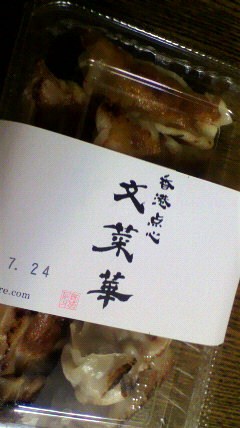 香港点心
文菜華
7.24
re.com